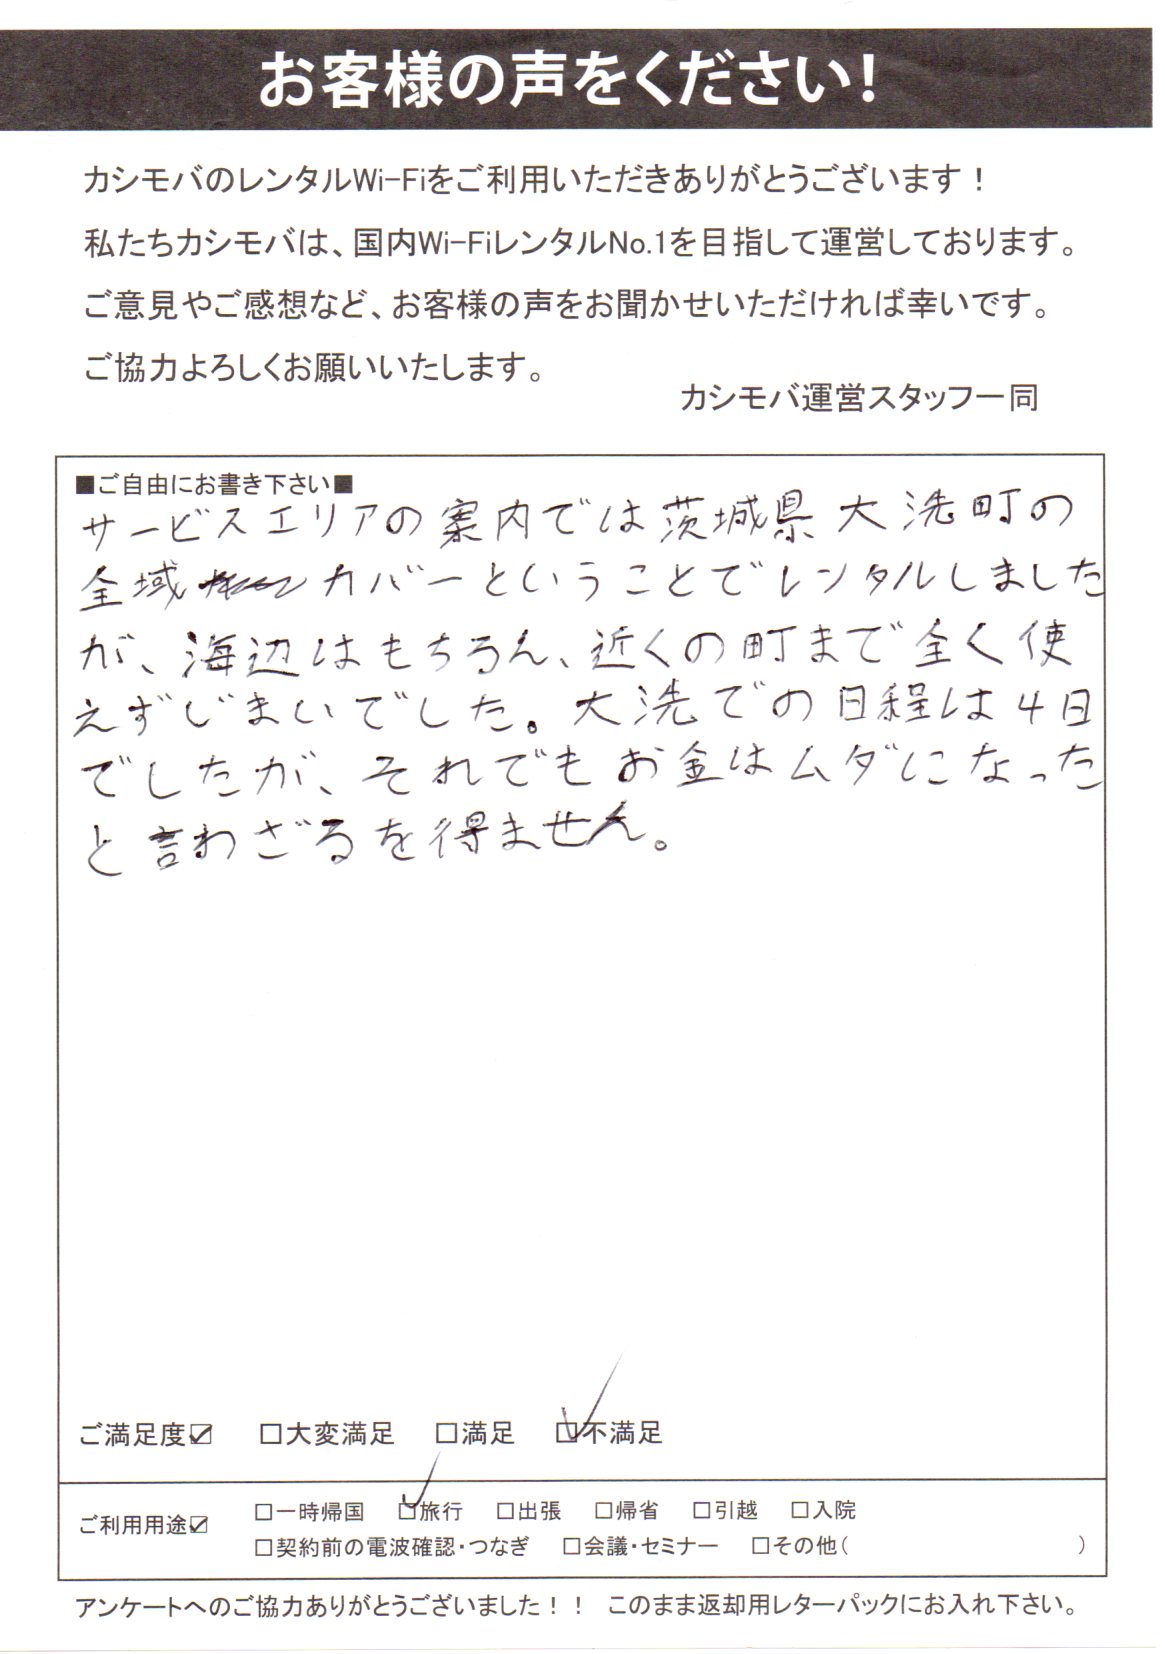 お客様の声をください!
カシモバのレンタルWi-Fiをご利用いただきありがとうございます！
私たちカシモバは、国内Wi-FiレンタルNo.1を目指して運営しております。
ご意見やご感想など、お客様の声をお聞かせいただければ幸いです。
ご協力よろしくお願いいたします。
カシモバ運営スタッフ一同
■ご自由にお書き下さい■
サービスエリアの案内では茨城県大洗町の
全域カバーということでレンタルしました
が、海辺はもちろん、近くの町まで全く使
えずじまいでした。大洗での日程は4日
でしたが、それでもお金はムダになった
と言わざるを得ません。
ご満足度☑ □大変満足 □満足 ☑不満足
ご利用用途☑ □一時帰国 ☑旅行 □出張 □帰省 □引越 □入院
□契約前の電波確認・つなぎ □会議・セミナー □その他( )
アンケートへのご協力ありがとうございました！！ このまま返却用レターパックにお入れ下さい。